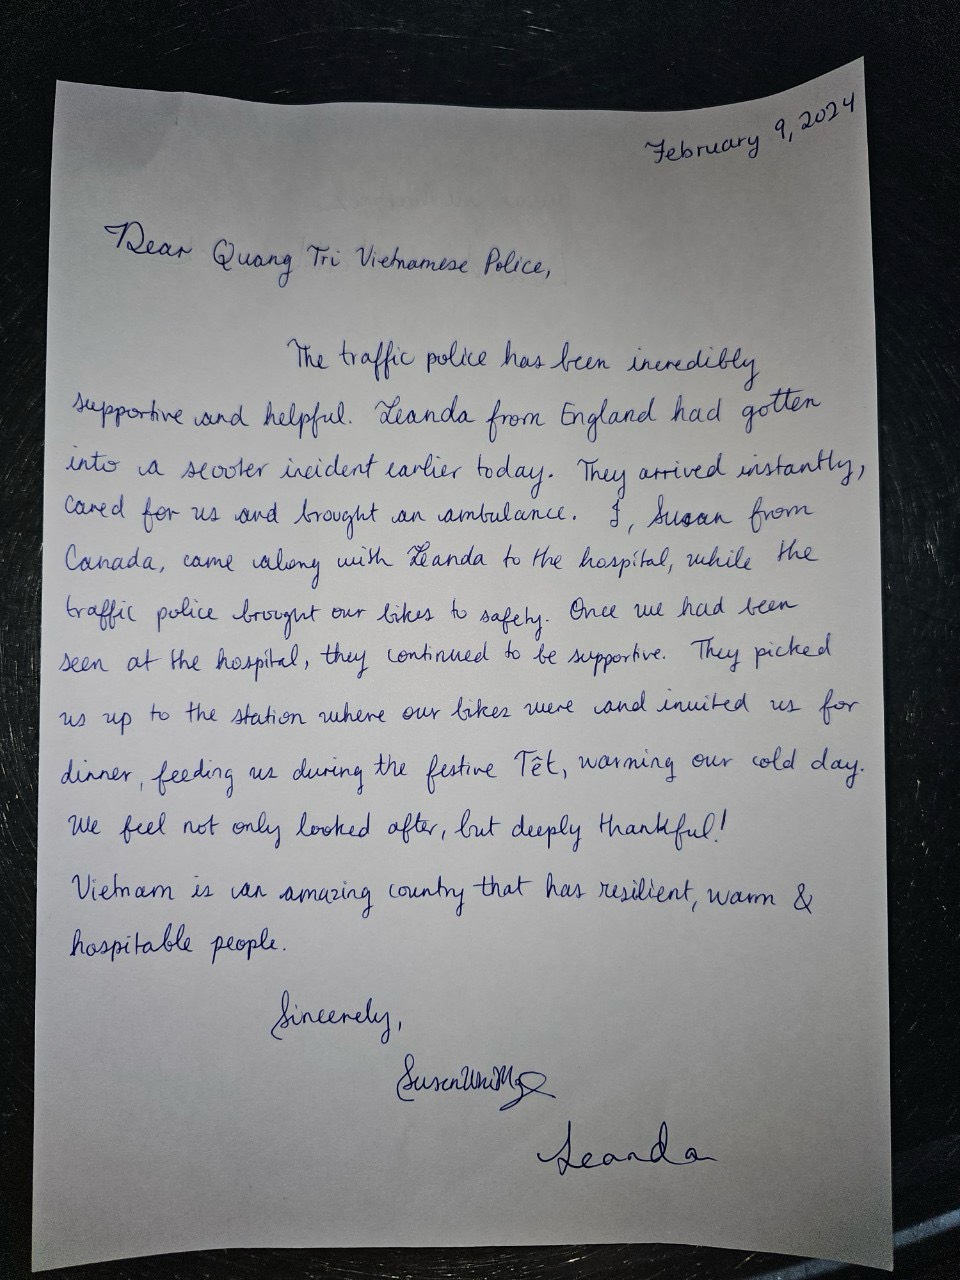 February 9, 2024
Dear Quang Tri Vietnamese Police,
The traffic police has been incredibly
supportive and helpful. Leanda from England had gotten
into a scooter incident earlier today. They arrived instantly,
cared for us and brought an ambulance. I, Susan from
Canada, came along with Leanda to the hospital, while the
traffic police brought our bikes to safety. Once we had been
seen at the hospital, they continued to be supportive. They picked
us up to the station where our bikes were and invited us for
dinner, feeding us during the festive Têt, warming our cold day.
We feel not only looked after, but deeply thankful!
Vietnam is an amazing country that has resilient, warm &
hospitable people.
Sincerely,
Susan
Leanda